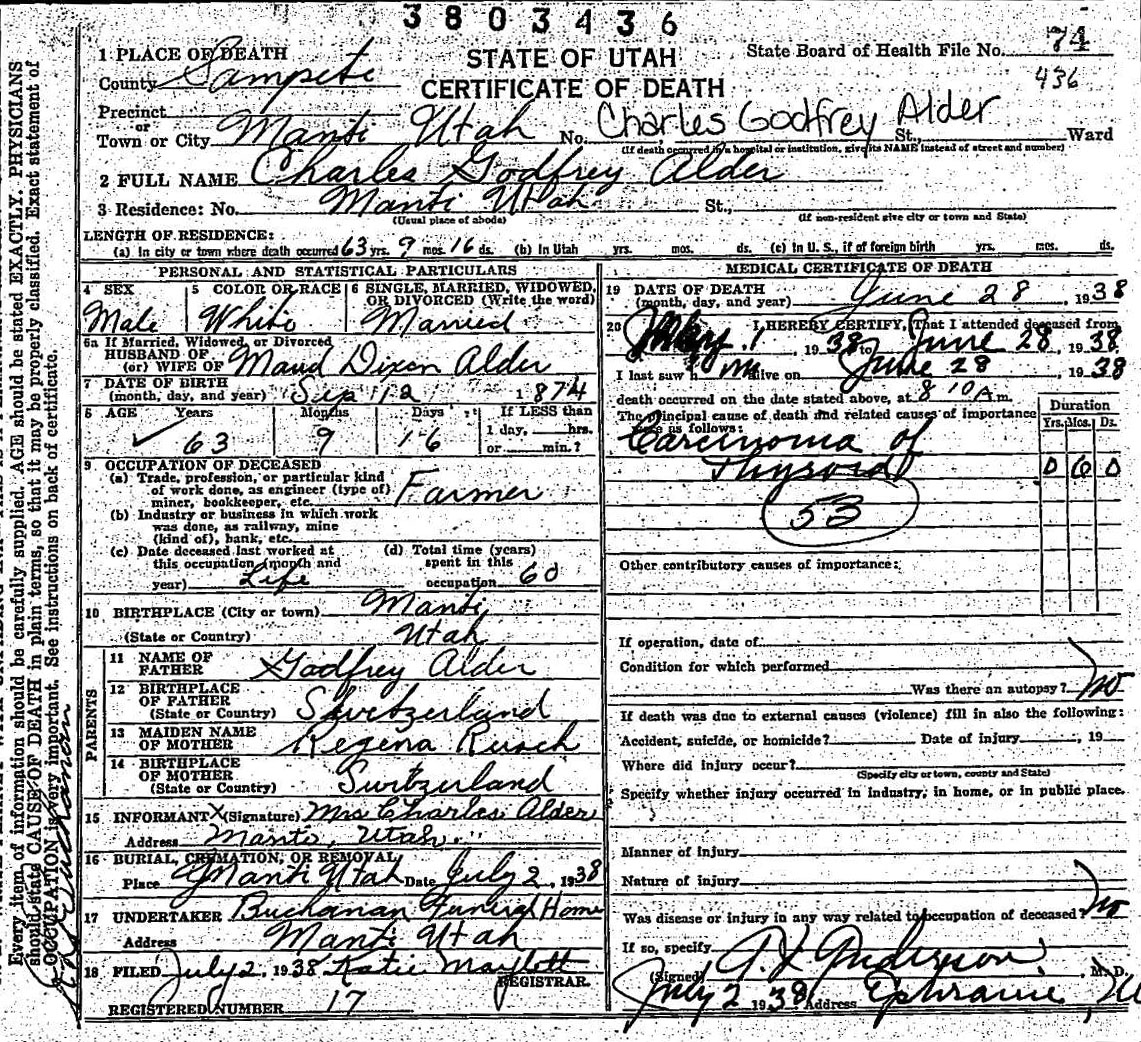 3803436
STATE OF UTAH
CERTIFICATE OF DEATH
State Board of Health File No. 74
436
1 PLACE OF DEATH
County Sampete
Precinct
or
Town or City Manti Utah No. Charles Godfrey Alder St., Ward
(If death occurred in a hospital or institution, give its NAME instead of street and number)
2 FULL NAME Charles Godfrey Alder
3 Residence: No. Manti Utah St.,
(Usual place of abode) (If non-resident give city or town and State)
LENGTH OF RESIDENCE:
(a) In city or town where death occurred 63 yrs. 9 mos. 16 ds. (b) In Utah yrs. mos. ds. (c) In U. S., if of foreign birth yrs. mos. ds.
PERSONAL AND STATISTICAL PARTICULARS
4 SEX 5 COLOR OR RACE 6 SINGLE, MARRIED, WIDOWED,
OR DIVORCED (Write the word)
Male White Married
6a If Married, Widowed, or Divorced
HUSBAND OF
(or) WIFE OF Maud Dixon Alder
7 DATE OF BIRTH
(month, day, and year) Sep 12 1874
8 AGE Years Months Days If LESS than
1 day, hrs.
63 9 16 or min.?
9 OCCUPATION OF DECEASED
(a) Trade, profession, or particular kind
of work done, as engineer (type of)
miner, bookkeeper, etc. Farmer
(b) Industry or business in which work
was done, as railway, mine
(kind of), bank, etc.
(c) Date deceased last worked at (d) Total time (years)
this occupation (month and spent in this
year) Life occupation 60
10 BIRTHPLACE (City or town) Manti,
(State or Country) Utah
PARENTS
11 NAME OF
FATHER Godfrey Alder
12 BIRTHPLACE
OF FATHER
(State or Country) Switzerland
13 MAIDEN NAME
OF MOTHER Regena Rusch
14 BIRTHPLACE
OF MOTHER
(State or Country) Switzerland
15 INFORMANT X (Signature) Mrs Charles Alder
Address Manti, Utah.
16 BURIAL, CREMATION, OR REMOVAL
Place Manti Utah Date July 2, 1938
17 UNDERTAKER Buchanan Funeral Home
Address Manti Utah
18 FILED July 2, 1938 Katie Maylett
REGISTRAR.
REGISTERED NUMBER 17
MEDICAL CERTIFICATE OF DEATH
19 DATE OF DEATH
(month, day, and year) June 28, 1938
20 I HEREBY CERTIFY, That I attended deceased from
May 1 1938 to June 28, 1938
I last saw him alive on June 28, 1938
death occurred on the date stated above, at 8 10 A m.
The principal cause of death and related causes of importance
were as follows:
Duration
Yrs. Mos. Ds.
Carcinoma of
Thyroid 0 6 0
53
Other contributory causes of importance:
If operation, date of
Condition for which performed
Was there an autopsy? no
If death was due to external causes (violence) fill in also the following:
Accident, suicide, or homicide? Date of injury , 19
Where did injury occur?
(Specify city or town, county and State)
Specify whether injury occurred in industry, in home, or in public place.
Manner of injury
Nature of injury
Was disease or injury in any way related to occupation of deceased? no
If so, specify
(Signed) Anderson, M. D.
July 2 1938 Address Ephraim,
Every item of information should be carefully supplied. AGE should be stated EXACTLY. PHYSICIANS
should state CAUSE OF DEATH in plain terms, so that it may be properly classified. Exact statement of
OCCUPATION is very important. See instructions on back of certificate.